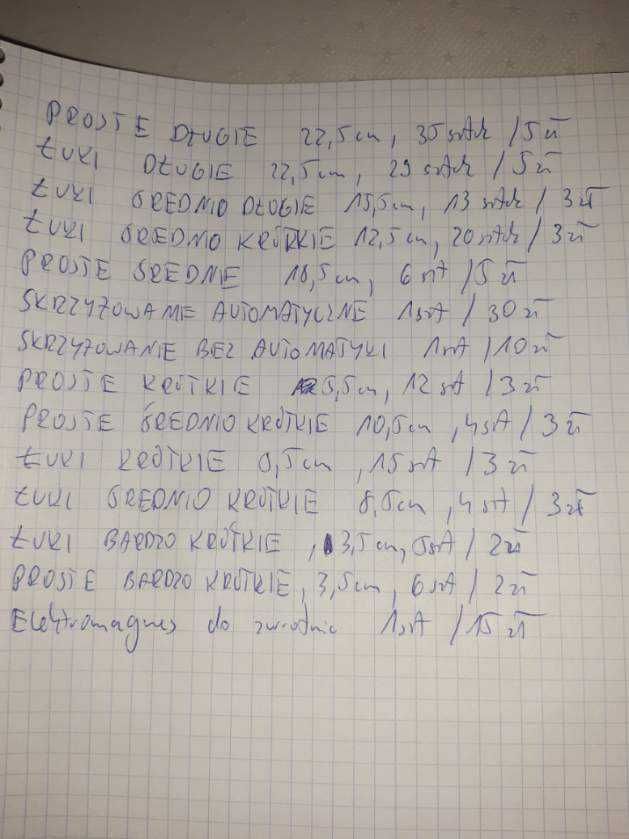 PROSTE DŁUGIE 22,5cm, 35 sztuk / 5 zł
ŁUKI DŁUGIE 22,5cm, 29 sztuk / 5 zł
ŁUKI ŚREDNIO DŁUGIE 15,5cm, 13 sztuk / 3 zł
ŁUKI ŚREDNIO KRÓTKIE 12,5cm, 20 sztuk / 3 zł
PROSTE ŚREDNIE 18,5cm, 6 szt / 5 zł
SKRZYŻOWANIE AUTOMATYCZNE 1szt / 30 zł
SKRZYŻOWANIE BEZ AUTOMATYKI 1szt / 10 zł
PROSTE KRÓTKIE 5,5cm, 12 szt / 3 zł
PROSTE ŚREDNIO KRÓTKIE 10,5cm, 4szt / 3 zł
ŁUKI KRÓTKIE ,5cm, 15szt / 3 zł
ŁUKI ŚREDNIO KRÓTKIE 8,5cm, 4szt / 3 zł
ŁUKI BARDZO KRÓTKIE, 3,5cm, szt / 2 zł
PROSTE BARDZO KRÓTKIE, 3,5cm, 6 szt / 2 zł
Elektromagnes do zwrotnic 1szt / 15 zł